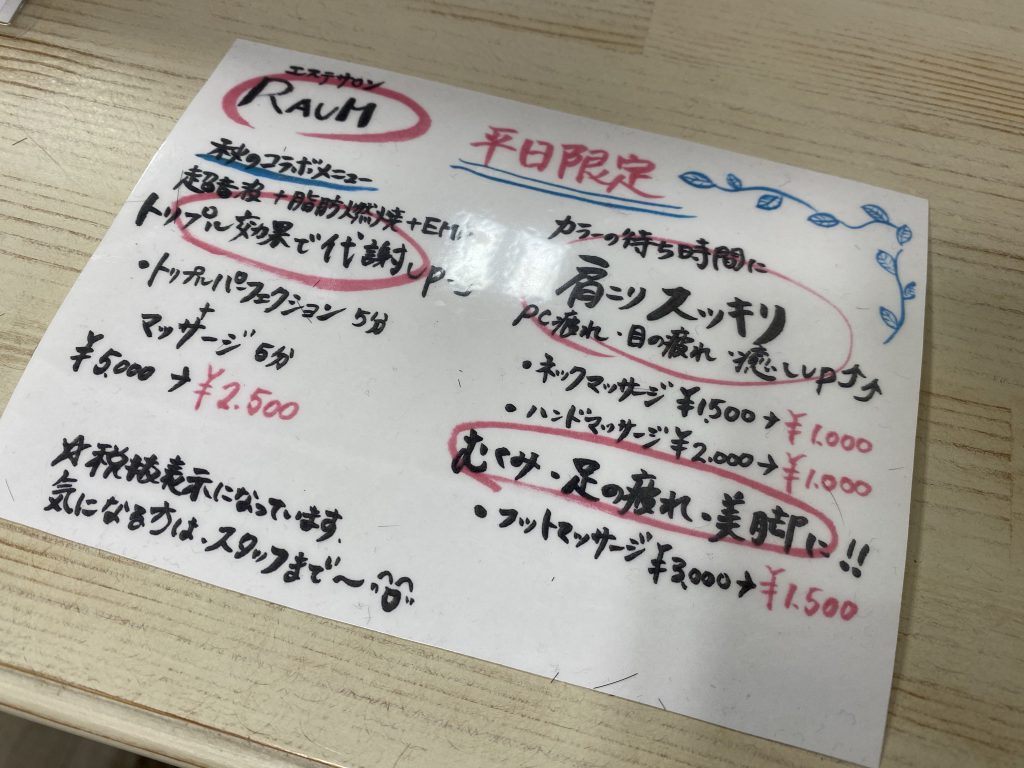 エステサロン
RAUM
平日限定
秋のコラボメニュー
超音波+脂肪燃焼+EMS
トリプル効果で代謝UP→
・トリプルパーフェクション 5分
+
マッサージ 5分
¥5,000→¥2.500
☆税抜表示になっています。
気になる方は、スタッフまで〜
カラーの待ち時間に
肩こりスッキリ
PC疲れ・目の疲れ・癒しUP↑↑
・ネックマッサージ ¥1500→¥1.000
・ハンドマッサージ ¥2.000→¥1.000
むくみ・足の疲れ・美脚に!!
・フットマッサージ ¥3,000→¥1.500